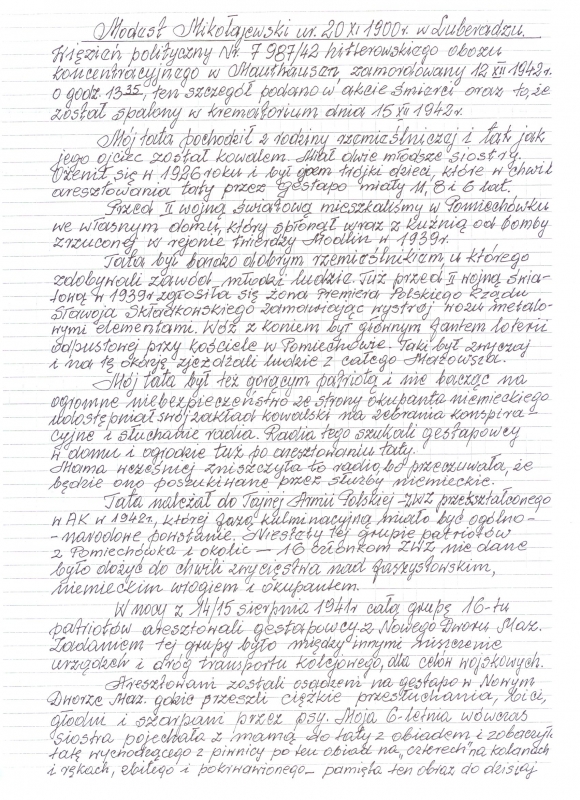 Modest Mikołajewski ur. 20 XI 1900r. w Luberadzu.
Więzień polityczny Nr. 7987/42 hitlerowskiego obozu
koncentracyjnego w Mauthausen, zamordowany 12 XII 1942r.
o godz. 13 35, ten szczegół podano w akcie śmierci oraz to, że
został spalony w krematorium dnia 15 XII 1942r.
Mój tata pochodził z rodziny rzemieślniczej i tak jak
jego ojciec został kowalem. Miał dwie młodsze siostry.
Ożenił się w 1926 roku i był ojcem trójki dzieci, które w chwili
aresztowania taty przez gestapo miały 11, 8 i 6 lat.
Przed II wojną światową mieszkaliśmy w Pomiechówku
we własnym domu, który spłonął wraz z kuźnią od bomby
zrzuconej w rejonie twierdzy Modlin w 1939r.
Tata był bardzo dobrym rzemieślnikiem, u którego
zdobywali zawód młodzi ludzie. Tuż przed II wojną świa-
tową w 1939r zgłosiła się żona Premiera Polskiego Rządu
Sławoja Składkowskiego zamawiając wystrój wozu metalo-
wymi elementami. Wóz z koniem był głównym fantem loterii
odpustowej przy kościele w Pomiechowie. Taki był zwyczaj
i na tę okazję zjeżdżali ludzie z całego Mazowsza.
Mój tata był też gorącym patriotą i nie bacząc na
ogromne niebezpieczeństwo ze strony okupanta niemieckiego
udostępniał swój zakład kowalski na zebrania konspira-
cyjne i słuchanie radia. Radia tego szukali gestapowcy
w domu i ogrodzie tuż po aresztowaniu taty.
Mama wcześniej zniszczyła to radio, bo przeczuwała, że
będzie ono poszukiwane przez służby niemieckie.
Tata należał do Tajnej Armii Polskiej - ZWZ przekształconego
w AK w 1942r, której fazą kulminacyjną miało być ogólno-
-narodowe powstanie. Niestety tej grupie patriotów
z Pomiechówka i okolic - 16 członkom ZWZ nie dane
było dożyć do chwili zwycięstwa nad faszystowskim,
niemieckim wrogiem i okupantem.
W nocy z 14/15 sierpnia 1941r całą grupę 16-tu
patriotów aresztowali gestapowcy z Nowego Dworu Maz.
Zadaniem tej grupy było między innymi niszczenie
urządzeń i dróg transportu kolejowego, dla celów wojskowych.
Aresztowani zostali osadzeni na gestapo w Nowym
Dworze Maz. gdzie przeszli ciężkie przesłuchania, bici,
głodni i szarpani przez psy. Moja 6-letnia wówczas
siostra pojechała z mamą do taty z obiadem i zobaczyła
tatę wychodzącego z piwnicy po ten obiad na „czterech” na kolanach
i rękach, zbitego i pokrwawionego - pamięta ten obraz do dzisiaj